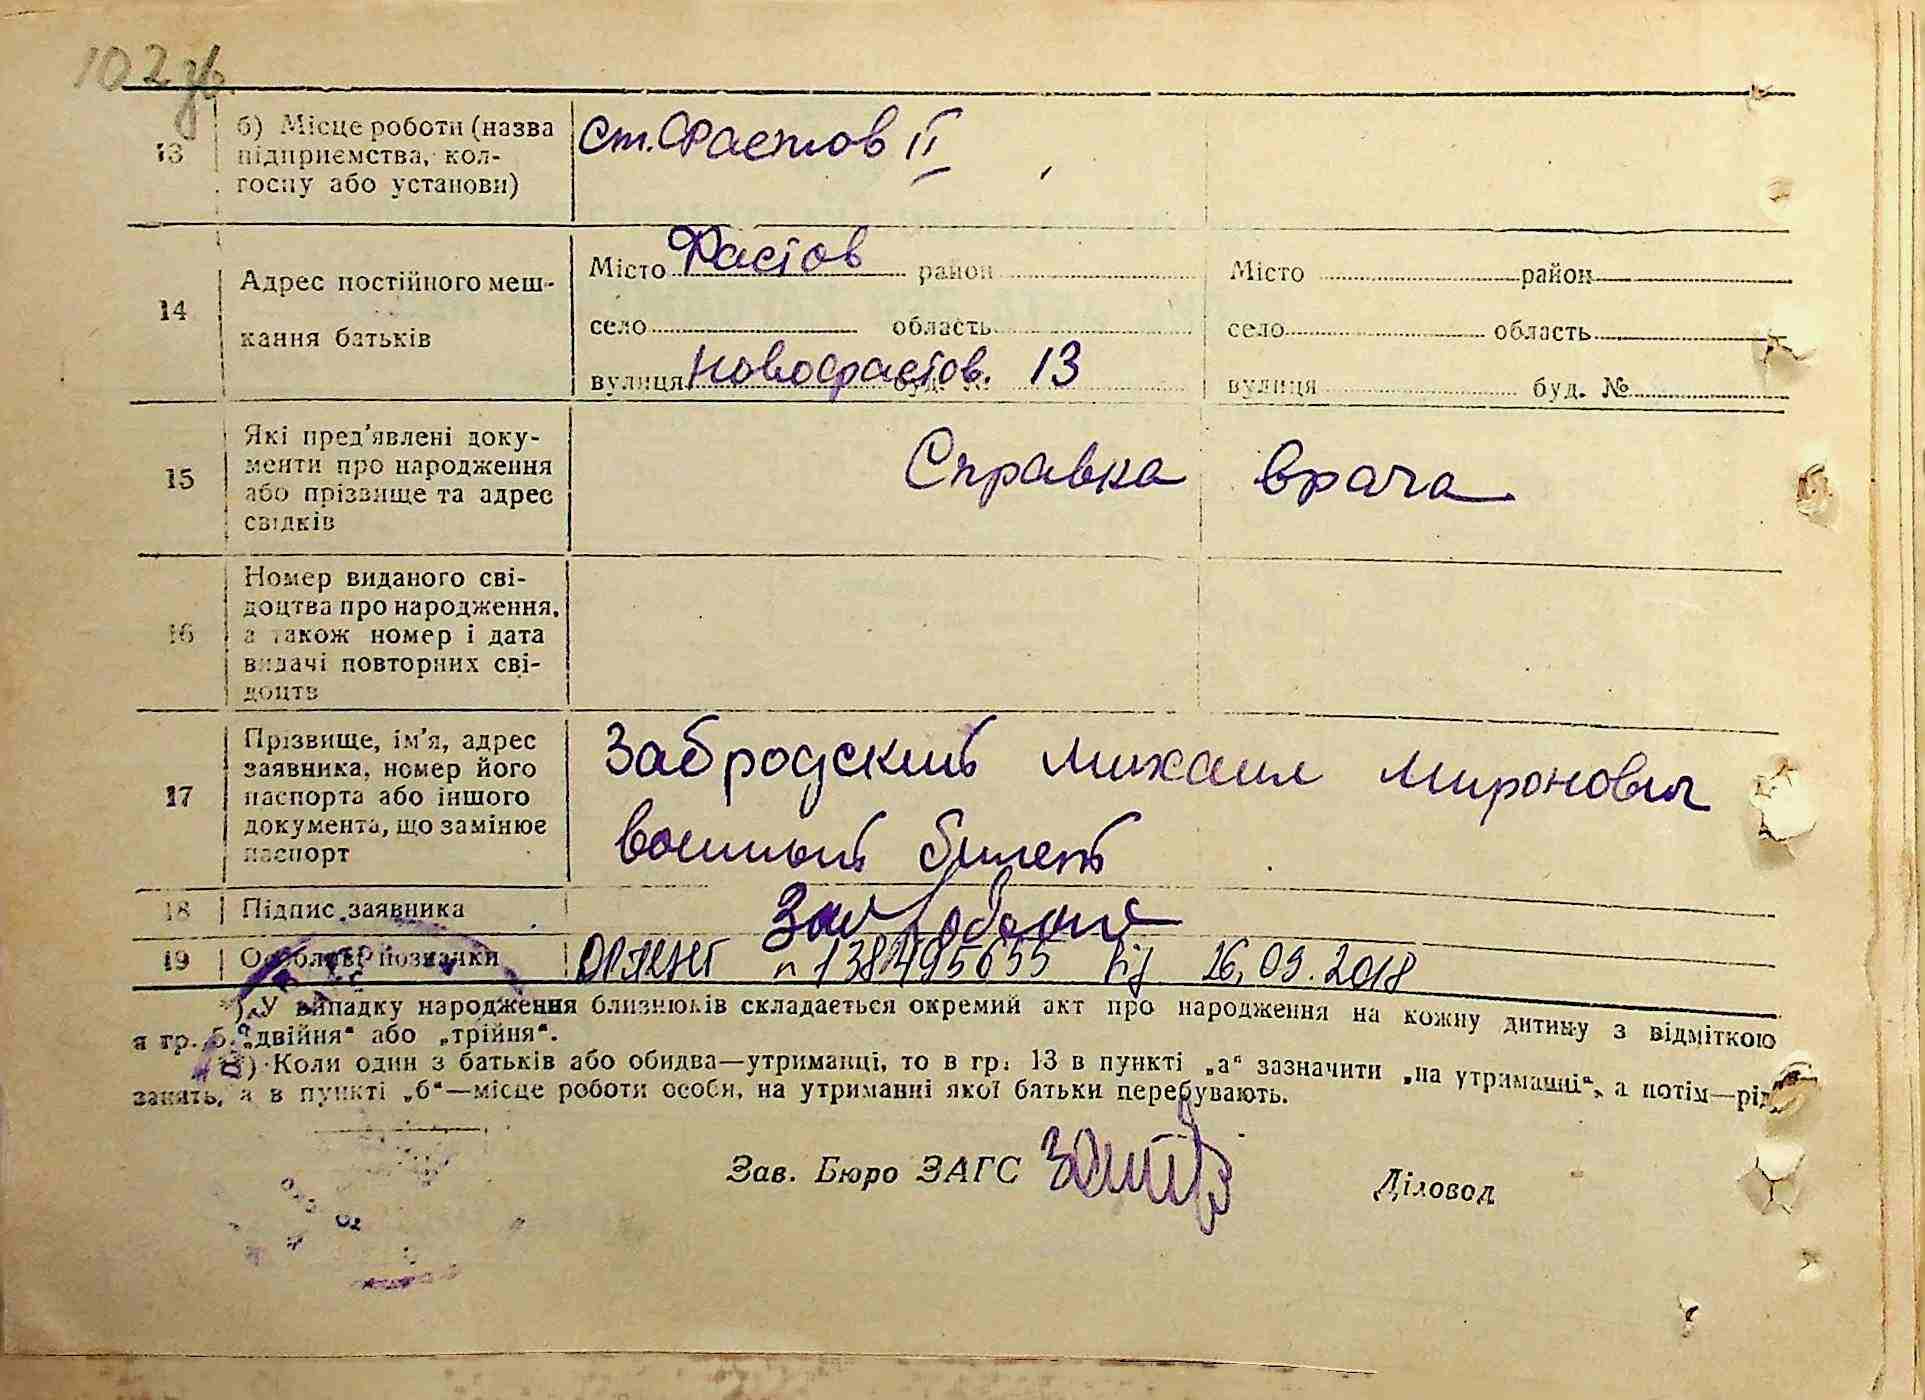 102 зв.
13 б) Місце роботи (назва підприємства, колгоспу або установи) ст. Фастов II
14 Адрес постійного меш-
кання батьків
Місто Фастов район
село область
вулиця Новофастов. буд. № 13
Місто район
село область
вулиця буд. №
15 Які пред'явлені доку-
менти про народження
або прізвище та адрес
свідків
Справка врача
16 Номер виданого сві-
доцтва про народження,
а також номер і дата
видачі повторних сві-
доцтв
17 Прізвище, ім'я, адрес
заявника, номер його
паспорта або іншого
документа, що замінює
паспорт
Забродский Михаил Миронович
военный билет
18 Підпис заявника
19 Особливі познанки
витяг № від 26.09.2018
*) У випадку народження близнюків складається окремий акт про народження на кожну дитину з відміткою
в гр. 5 „двійня“ або „трійня“.
Коли один з батьків або обидва—утриманці, то в гр. 13 в пункті „а“ зазначити „на утриманні“, а потім—рід
занять, а в пункті „б“—місце роботи особи, на утриманні якої батьки перебувають.
Зав. Бюро ЗАГС
Діловод